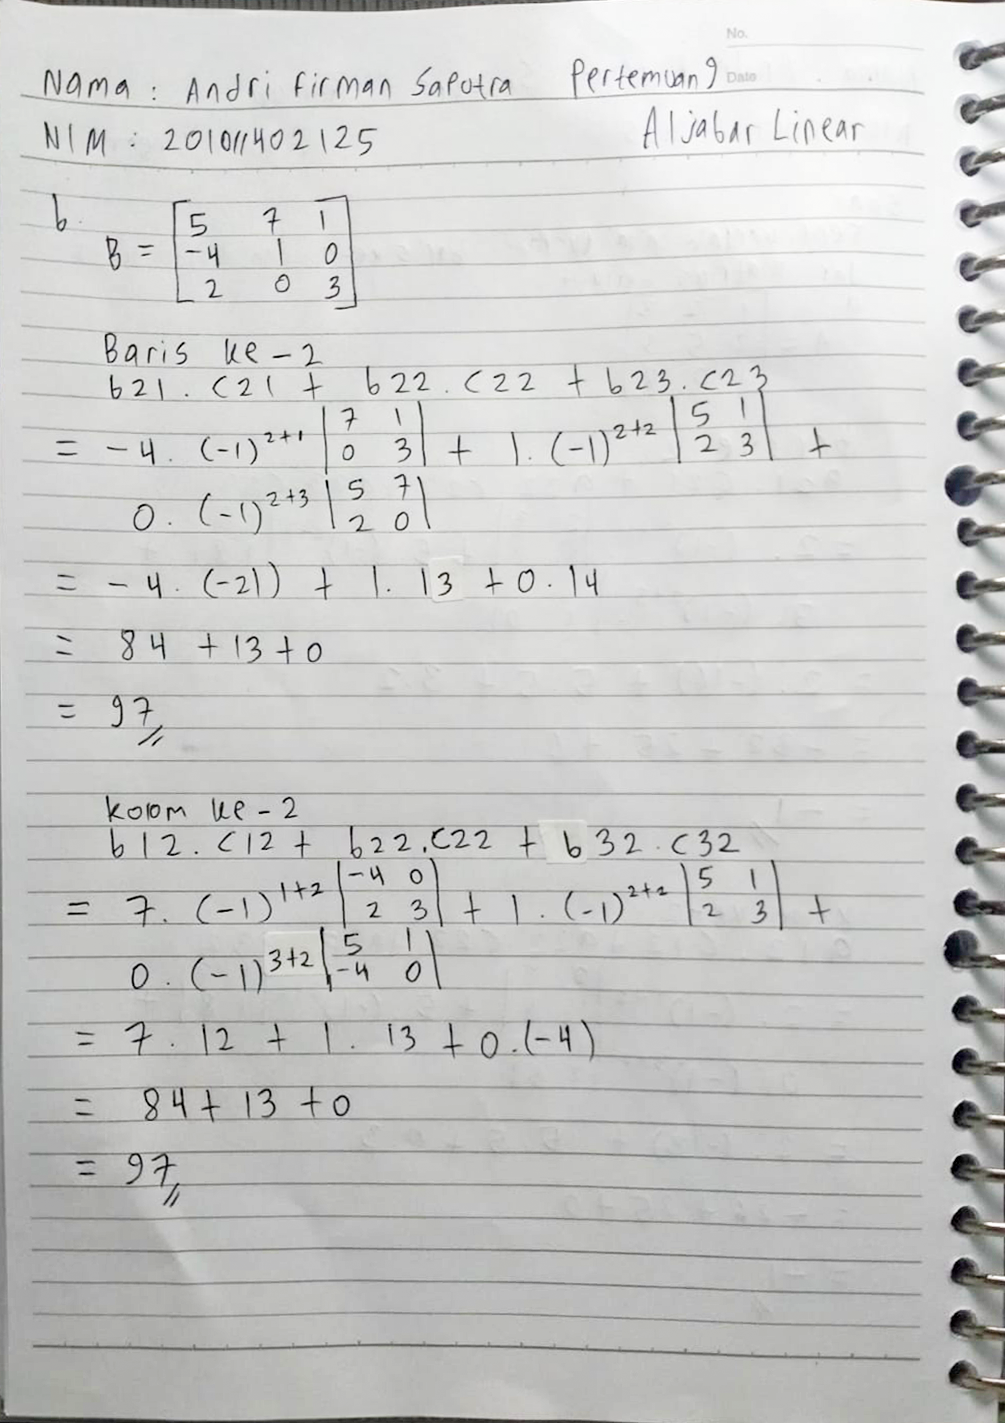 No.
Date
Nama : Andri Firman Saputra Pertemuan 9
NIM : 201011402125 Aljabar Linear
b.
B = [5 7 1
-4 1 0
2 0 3]
Baris ke - 2
b21 . C21 + b22 . C22 + b23 . C23
= -4 . (-1)^2+1 |7 1| + 1 . (-1)^2+2 |5 1| +
|0 3| |2 3|
0 . (-1)^2+3 |5 7|
|2 0|
= -4 . (-21) + 1 . 13 + 0 . 14
= 84 + 13 + 0
= 97
Kolom ke - 2
b12 . C12 + b22 . C22 + b32 . C32
= 7 . (-1)^1+2 |-4 0| + 1 . (-1)^2+2 |5 1| +
|2 3| |2 3|
0 . (-1)^3+2 |5 1|
|-4 0|
= 7 . 12 + 1 . 13 + 0 . (-4)
= 84 + 13 + 0
= 97